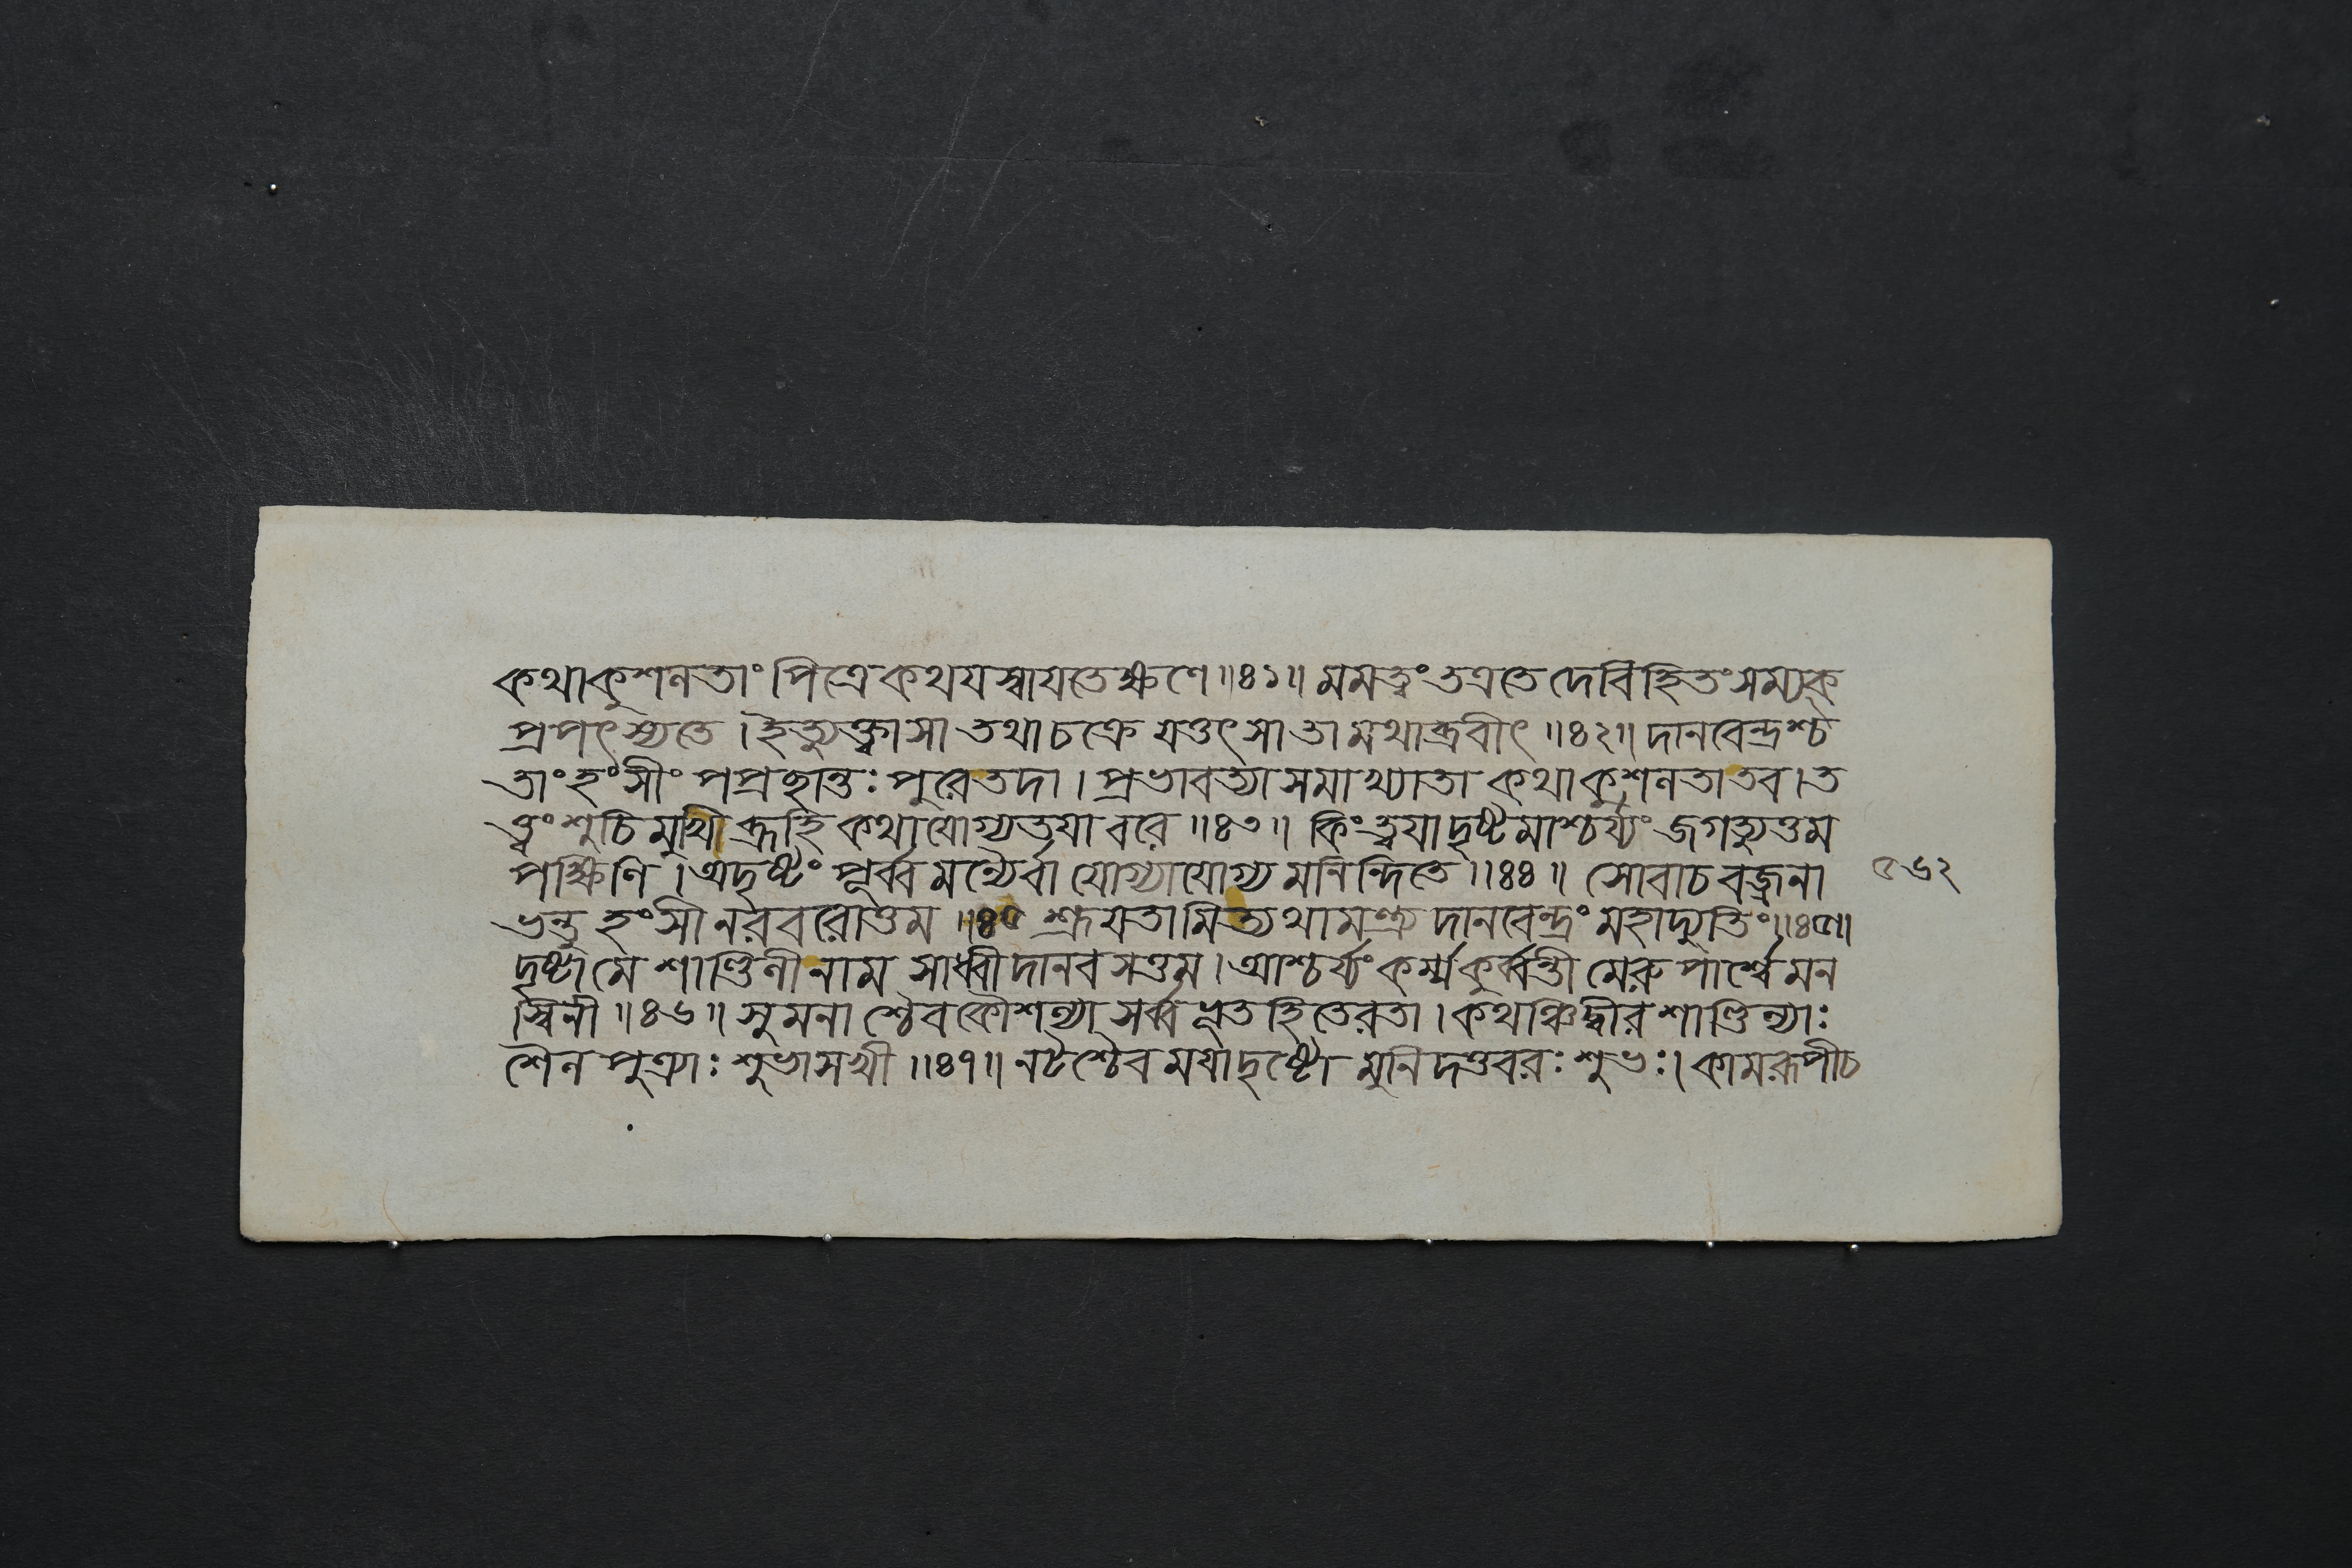 কথাকুশলতাং পিত্রে কথযস্বাযতেক্ষণে ॥৪১॥ মমত্বং তত্রতে দেবি হিতং সম্যক্
প্রপৎস্যতে । ইত্যুক্ত্বাসা তথা চক্রে যত্তৎ সা তামথাব্রবীৎ ॥৪২॥ দানবেন্দ্রশ্চ
তাং হংসীং পপ্রচ্ছান্তঃপুরে তদা । প্রভাবত্যা সমাখ্যাতা কথাকুশলতা তব । ত
ত্ত্বং শুচিমুখী ব্রূহি কথা যোগ্যতযা বরে ॥৪৩॥ কিং ত্বযা দৃষ্টমাশ্চর্য্যং জগত্যুত্তম
পক্ষিণি । অদৃষ্টং পূর্ব্বমন্যৈর্বা যোগ্যাযোগ্যমনিন্দিতে ॥৪৪॥ সোবাচ বজ্রনা
ভন্তু হংসী নরবরোত্তম ॥৪৫ শ্রূযতামিত্যথামন্ত্র্য দানবেন্দ্রং মহাদ্যুতিং ॥৪৫॥
দৃষ্টা মে শাণ্ডিলী নাম সাধ্বী দানবসত্তম । আশ্চর্য্যং কর্ম্ম কুর্ব্বন্তী মেরুপার্শ্বে মন
স্বিনী ॥৪৬॥ সুমনাশ্চৈব কৌশল্যা সর্ব্বভূতহিতে রতা । কথঞ্চিদ্বীর শাণ্ডিল্যাঃ
শৈলপুত্র্যাঃ শুভা সখী ॥৪৭॥ নটশ্চৈব মযা দৃষ্টো মুনিদত্তবরঃ শুভঃ । কামরূপী চ
৫৬২